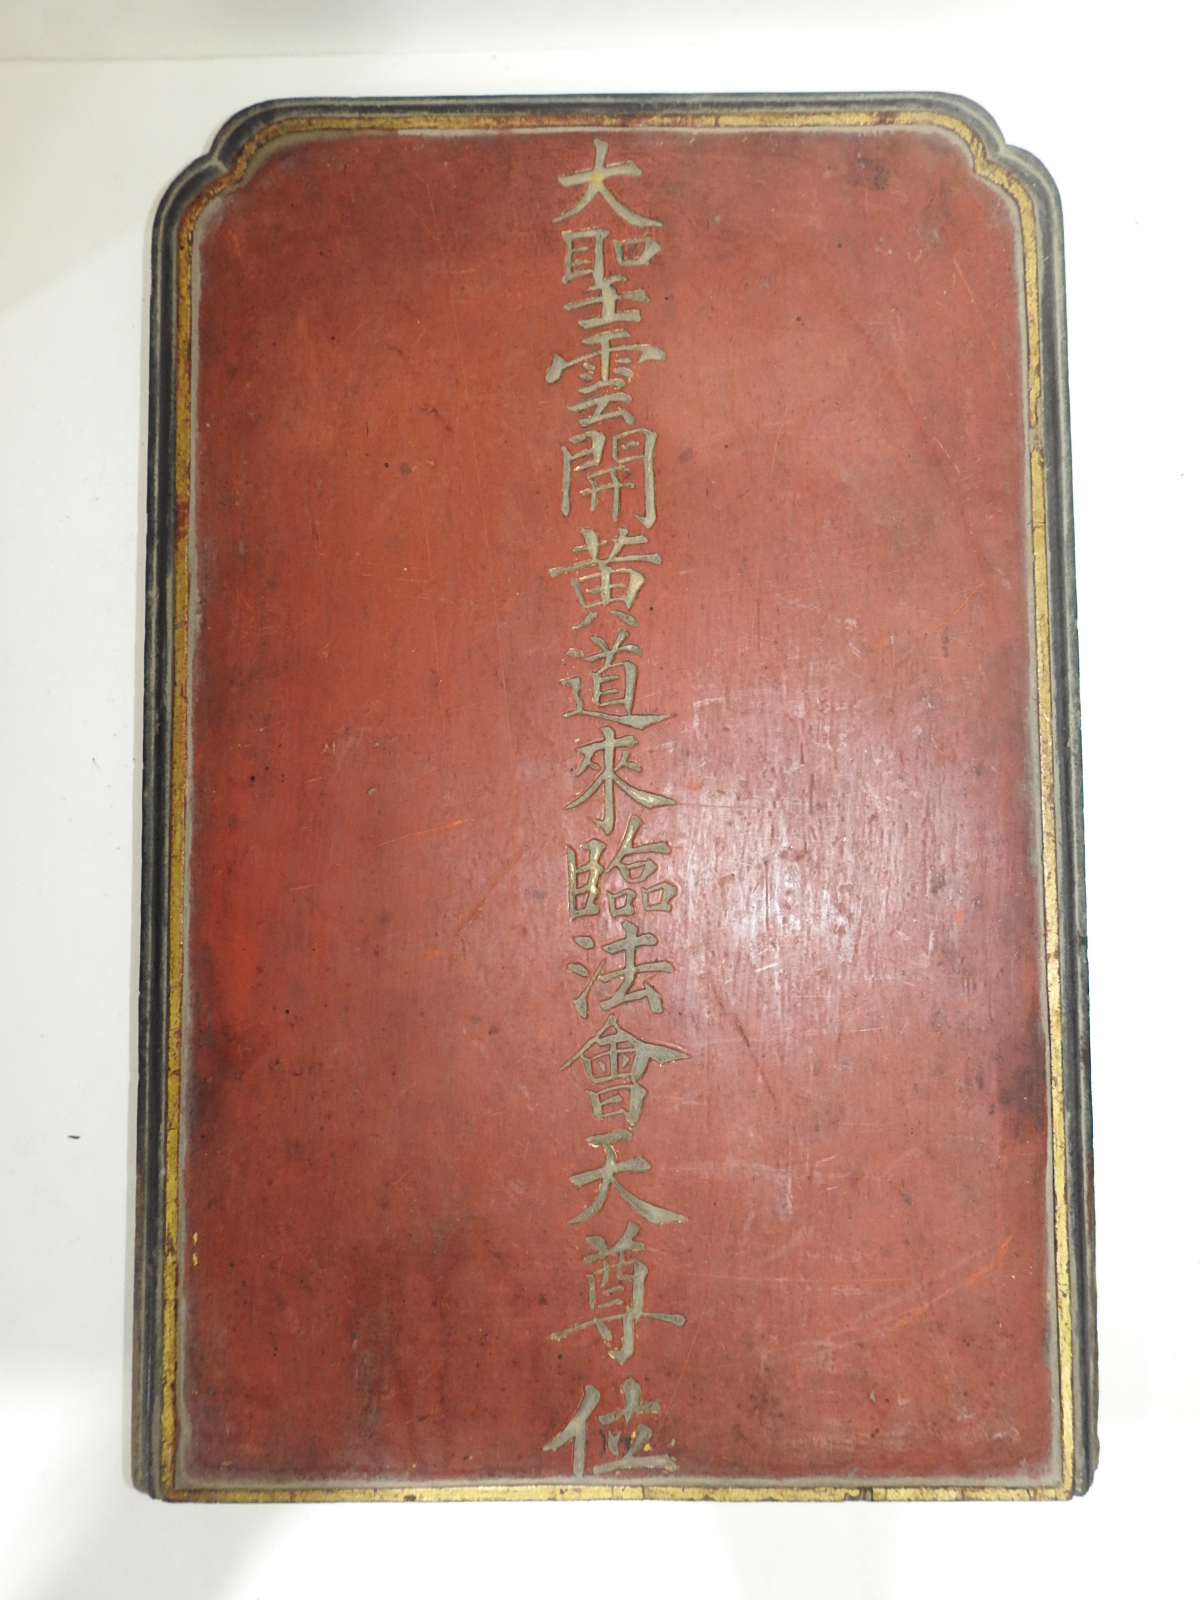 大聖雲開黃道來臨法會天尊位